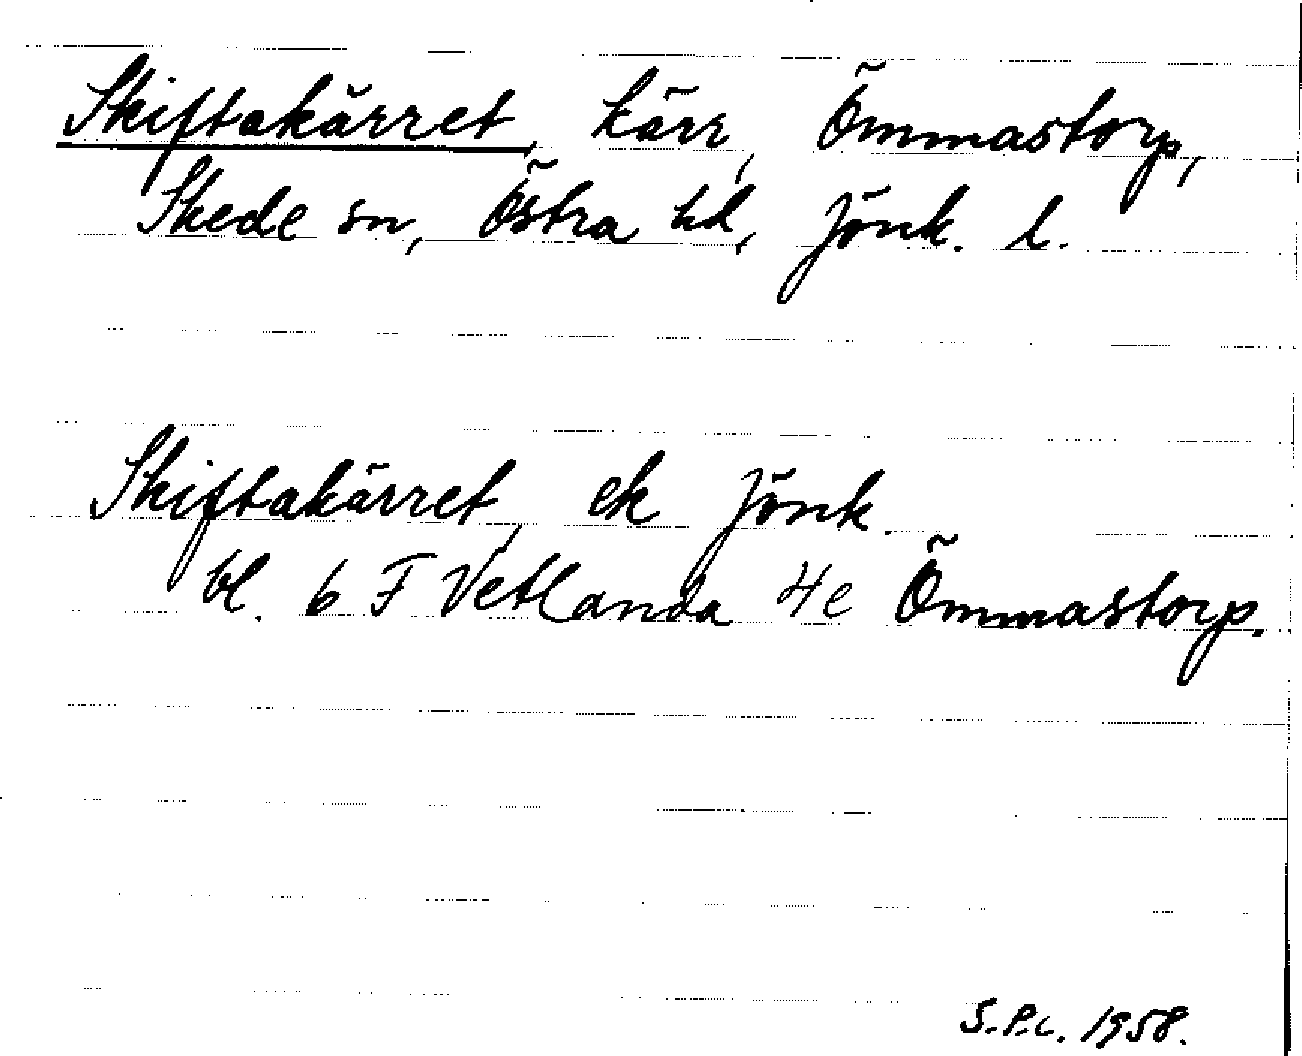 Skiftakärret, kärr, Ömmastorp,
Skede sn, Östra hd, Jönk. l.
Skiftakärret, ek Jönk.
bl. 6 F Vetlanda 4e Ömmastorp.
S.P.L. 1958.